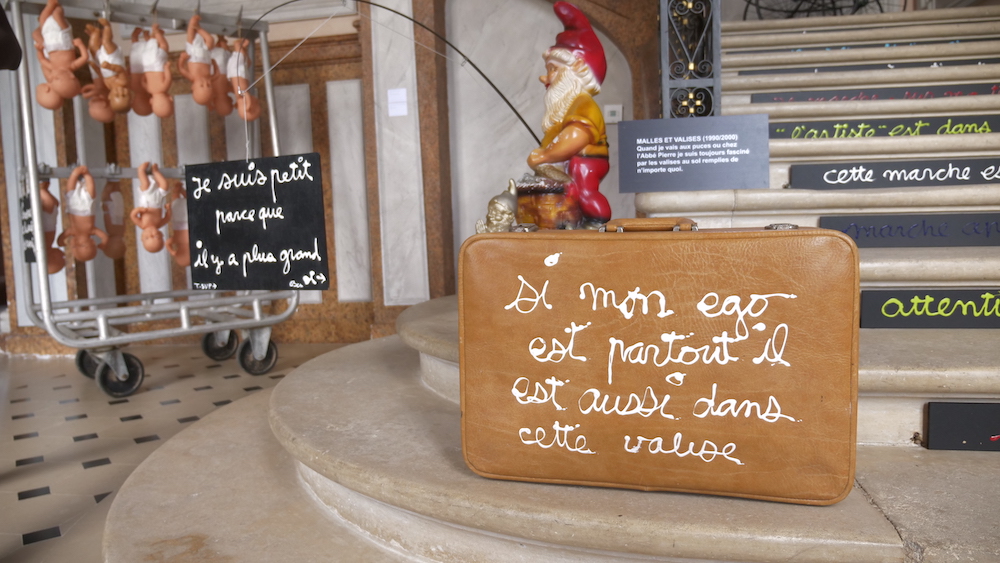 Je suis petit
parce que
il y a plus grand
MALLES ET VALISES (1990/2000)
Quand je vais aux puces ou chez
l'Abbé Pierre je suis toujours fasciné
par les valises au sol remplies de
n'importe quoi.
"l'artiste" est dans
cette marche es
marche
attenti
si mon ego
est partout il
est aussi dans
cette valise